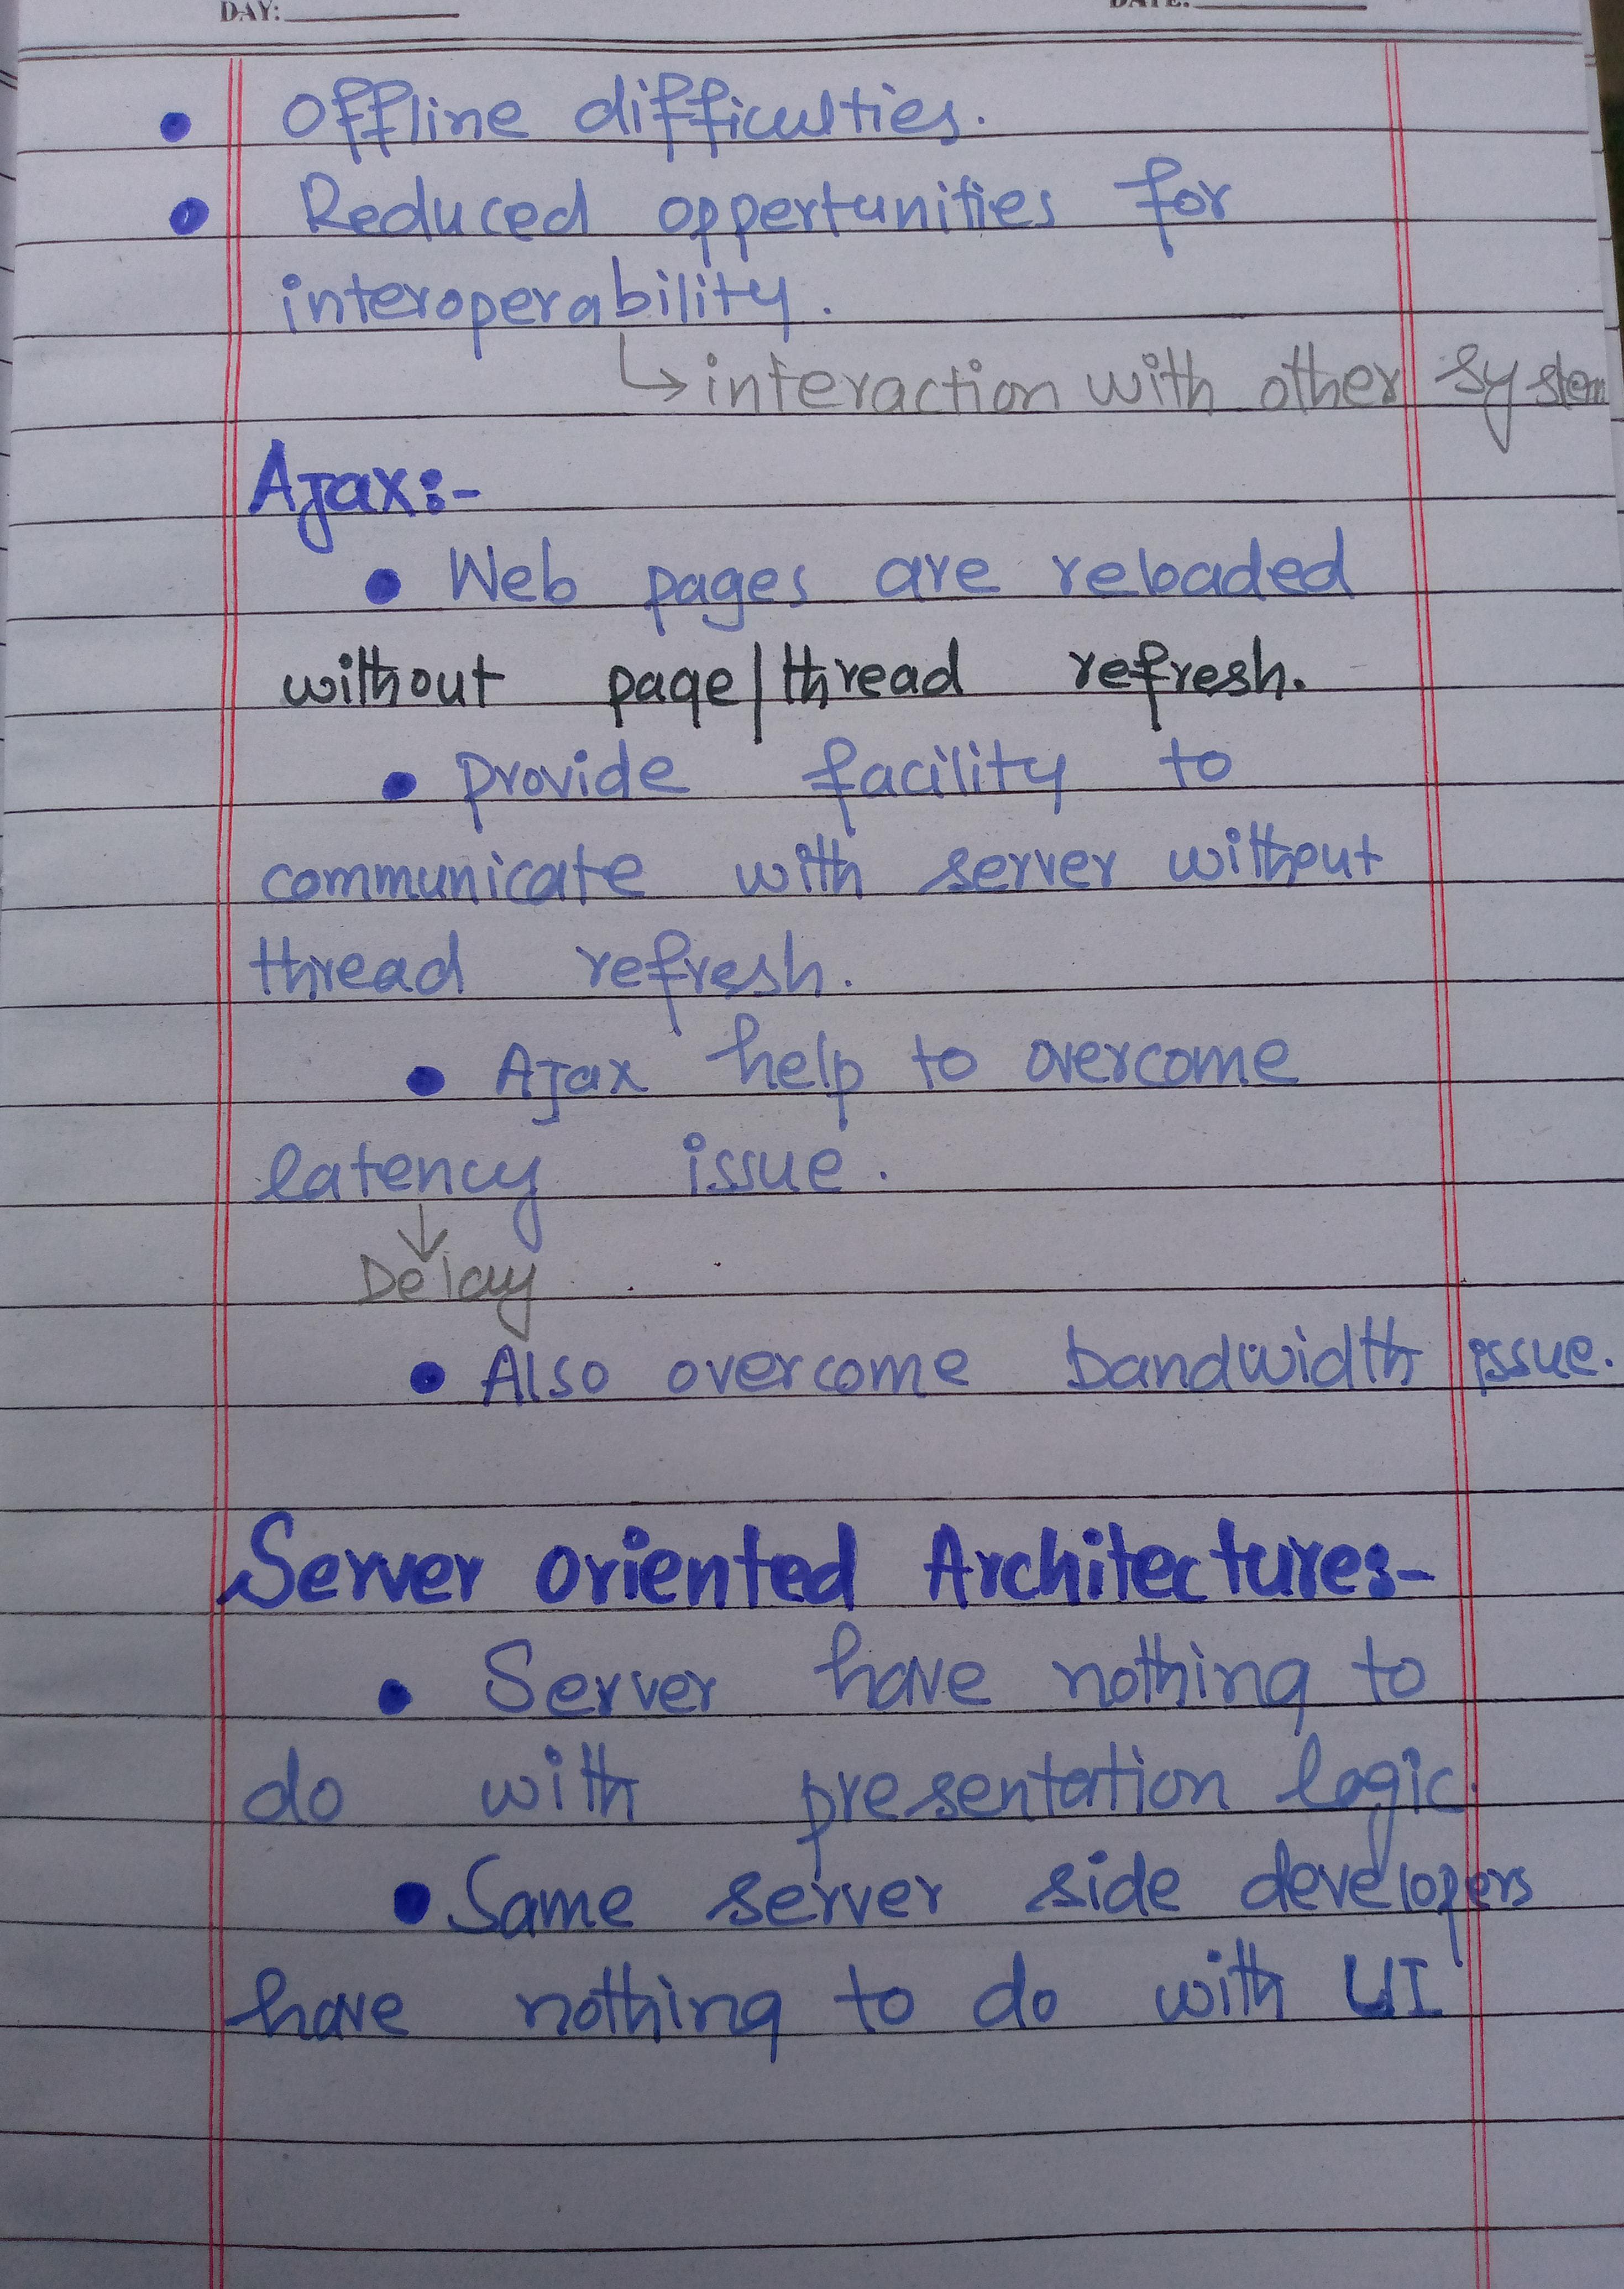 DAY:
DATE:
• Offline difficulties.
• Reduced oppertunities for
interoperability.
↳ interaction with other system
Ajax:-
• Web pages are reloaded
without page/thread refresh.
• provide facility to
communicate with server without
thread refresh.
• Ajax help to overcome
latency issue.
↓
Delay
• Also overcome bandwidth issue.
Server oriented Architectures-
• Server have nothing to
do with presentation logic.
• Same server side developers
have nothing to do with UI